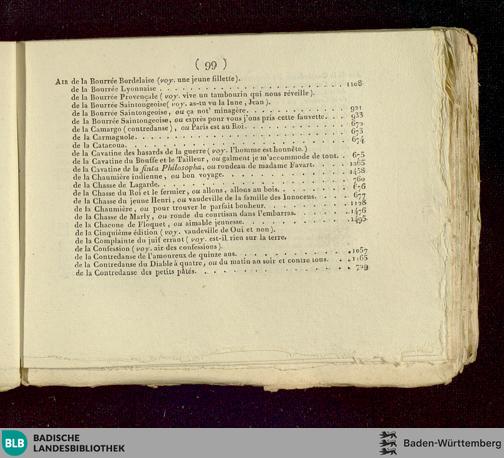 ( 99 )
Air de la Bourrée Bordelaise (voy. une jeune fillette).
de la Bourrée Lyonnaise . . . 1108
de la Bourrée Provençale (voy. vive un tambourin qui nous réveille).
de la Bourrée Saintongeoise (voy. as-tu vu la lune, Jean).
de la Bourrée Saintongeoise, ou ça not' minagère . . . 921
de la Bourrée Saintongeoise, ou exprès pour vous j'ons pris cette fauvette . . . 933
de la Camargo (contredanse), ou Paris est au Roi . . . 672
de la Carmagnole . . . 673
de la Catacoua . . . 674
de la Cavatine des hasards de la guerre (voy. l'homme est honnête.)
de la Cavatine du Bouffe et le Tailleur, ou galment je m'accommode de tout . . . 675
de la Cavatine de la finta Philosopha, ou rondeau de madame Favart . . . 1265
de la Chaumière indienne, ou bon voyage . . . 1458
de la Chasse de Lagarde . . . 760
de la Chasse du Roi et le fermier, ou allons, allons au bois . . . 676
de la Chasse du jeune Henri, ou vaudeville de la famille des Innocens . . . 677
de la Chaumière, ou pour trouver le parfait bonheur . . . 1128
de la Chasse de Marly, ou ronde du courtisan dans l'embarras . . . 1476
de la Chacone de Floquet, ou aimable jeunesse . . . 1495
de la Cinquième édition (voy. vaudeville de Oui et non).
de la Complainte du juif errant (voy. est-il rien sur la terre.
de la Confession (voy. air des confessions).
de la Contredanse de l'amoureux de quinze ans . . . 1057
de la Contredanse du Diable à quatre, ou du matin au soir et contre tous . . . 1165
de la Contredanse des petits pâtés . . . 729
BLB BADISCHE
LANDESBIBLIOTHEK
Baden-Württemberg